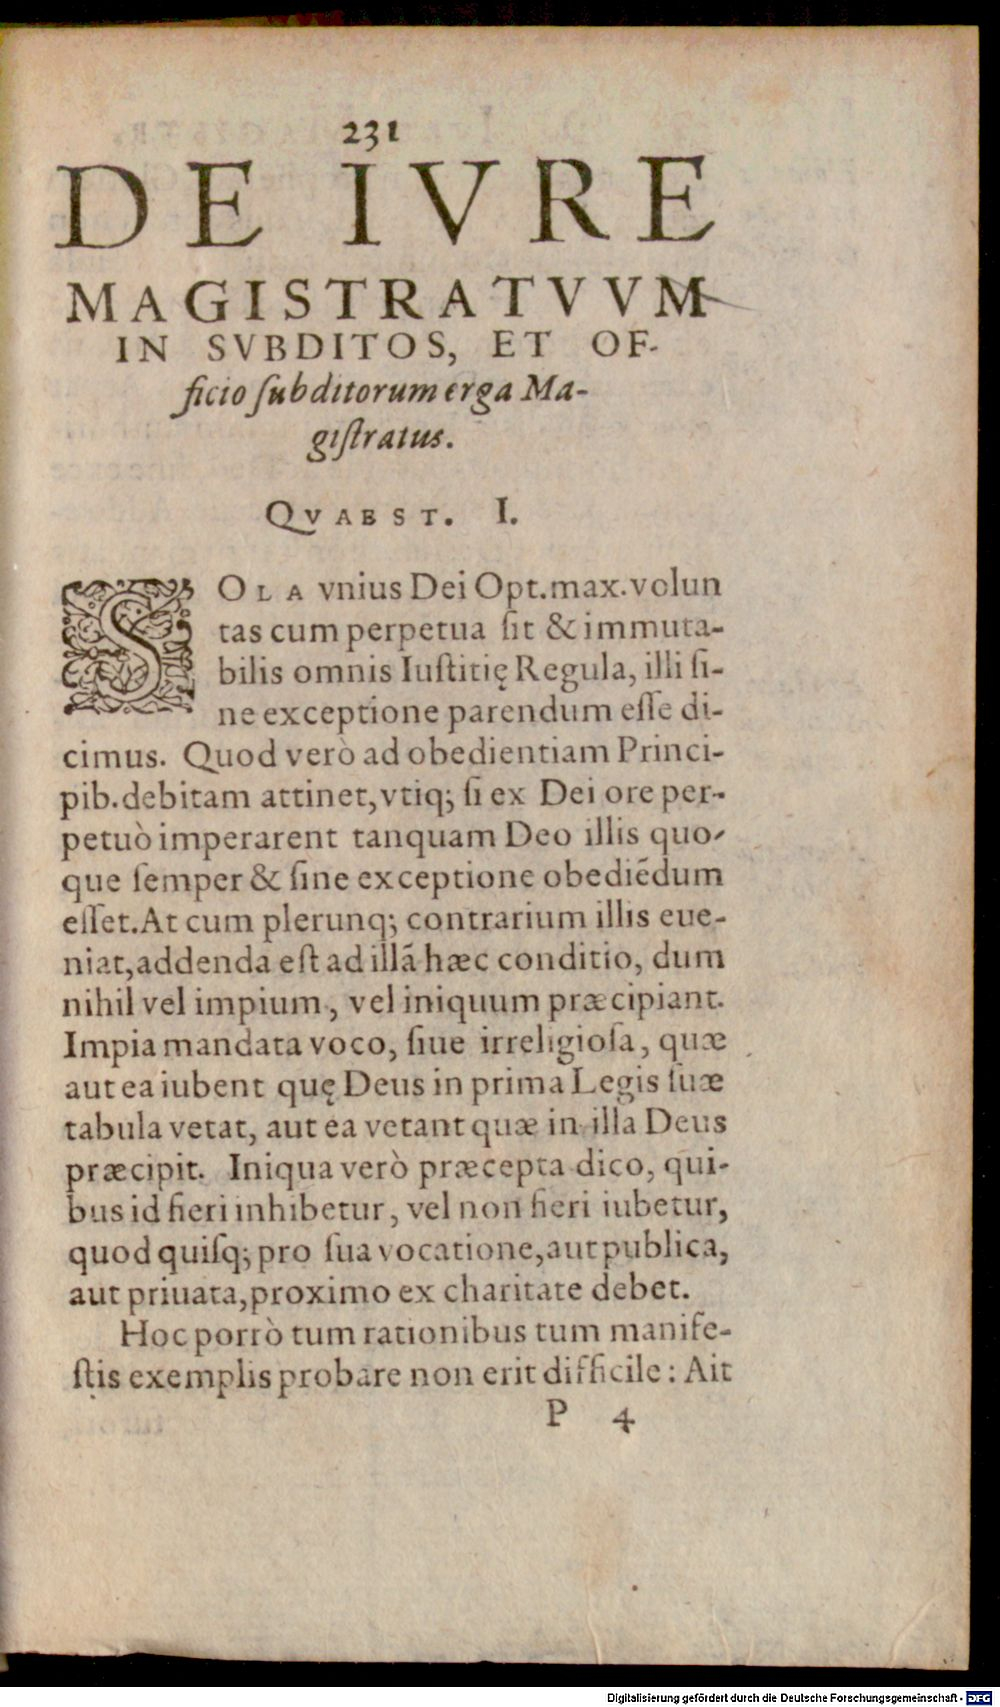 231
DE IVRE
MAGISTRATVVM
IN SVBDITOS, ET OF-
ficio ſubditorum erga Ma-
giſtratus.
QVAEST. I.
SOLA vnius Dei Opt. max. volun
tas cum perpetua ſit & immuta-
bilis omnis Iuſtitię Regula, illi ſi-
ne exceptione parendum eſſe di-
cimus. Quod verò ad obedientiam Princi-
pib. debitam attinet, vtiq; ſi ex Dei ore per-
petuò imperarent tanquam Deo illis quo-
que ſemper & ſine exceptione obediēdum
eſſet. At cum plerunq; contrarium illis eue-
niat, addenda eſt ad illā hæc conditio, dum
nihil vel impium, vel iniquum præcipiant.
Impia mandata voco, ſiue irreligioſa, quæ
aut ea iubent quę Deus in prima Legis ſuæ
tabula vetat, aut ea vetant quæ in illa Deus
præcipit. Iniqua verò præcepta dico, qui-
bus id fieri inhibetur, vel non fieri iubetur,
quod quiſq; pro ſua vocatione, aut publica,
aut priuata, proximo ex charitate debet.
Hoc porrò tum rationibus tum manife-
ſtis exemplis probare non erit difficile: Ait
P 4
Digitalisierung gefördert durch die Deutsche Forschungsgemeinschaft - DFG